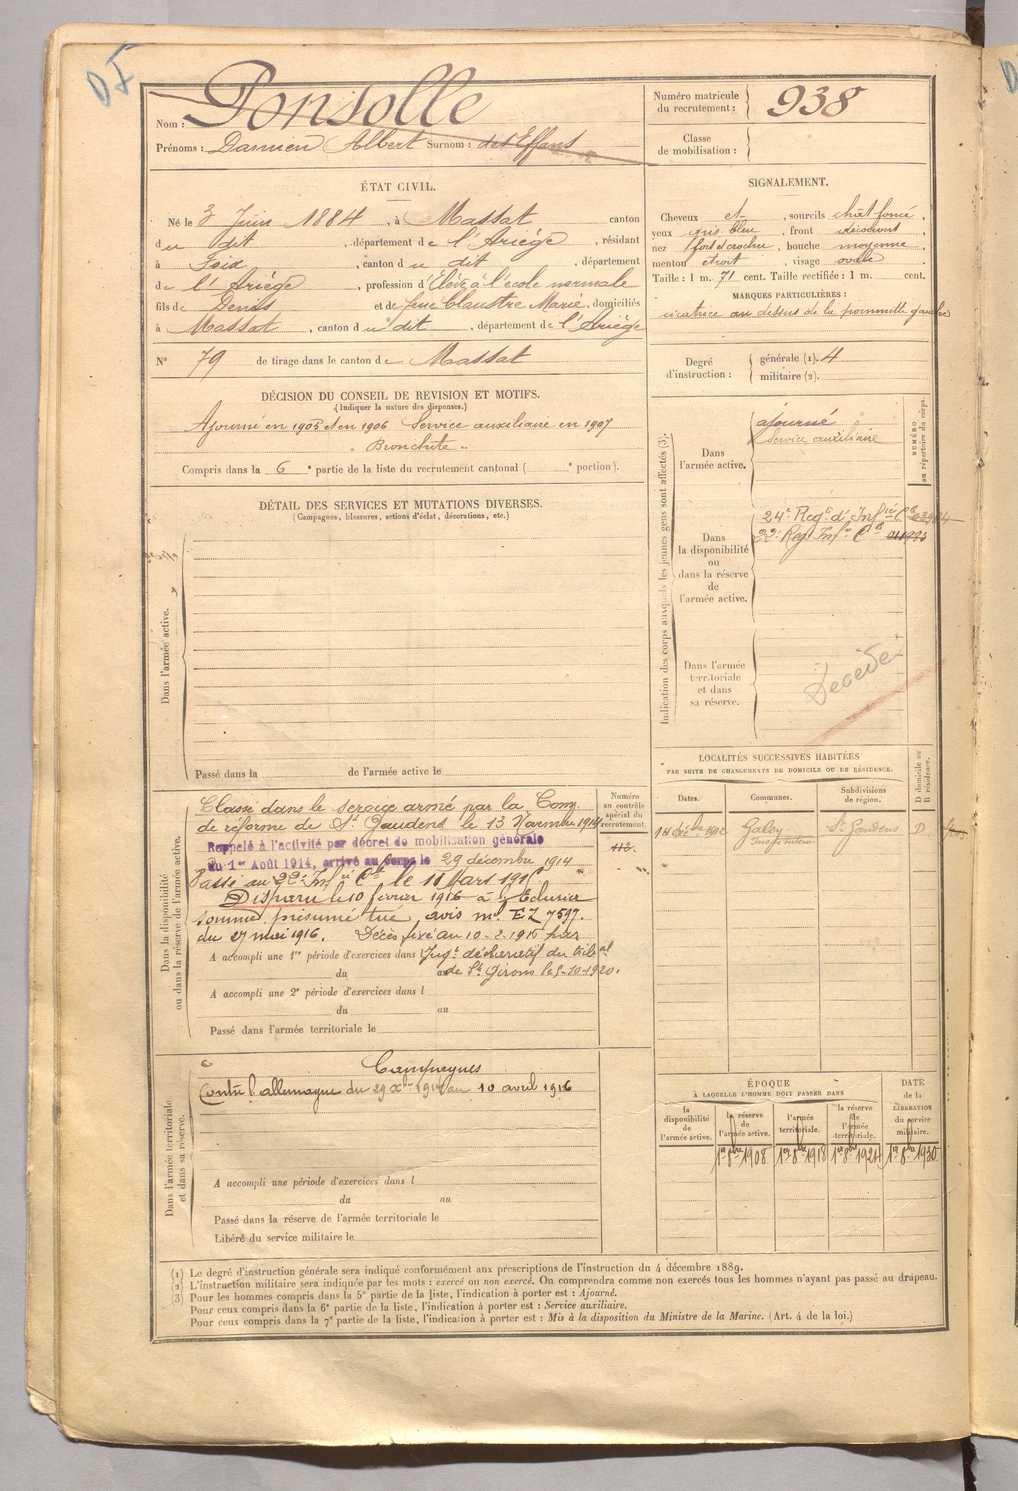 DF
Nom : Ponsolle
Prénoms : Damien Albert Surnom : des Effans
Numéro matricule du recrutement : 938
Classe de mobilisation :
ÉTAT CIVIL.
Né le 3 Juin 1884, à Massat canton
du dit, département de l'Ariége, résidant
à Foix, canton du dit, département
de l'Ariége, profession d'Elève à l'école normale
fils de Denis et de feue Claustre Marie, domiciliés
à Massat, canton du dit, département de l'Ariége
N° 79 de tirage dans le canton de Massat
SIGNALEMENT.
Cheveux et, sourcils chât foncé,
yeux gris bleu, front découvert
nez fort et crochu, bouche moyenne
menton étroit, visage ovale
Taille : 1 m. 71 cent. Taille rectifiée : 1 m. cent.
MARQUES PARTICULIÈRES :
cicatrice au dessus de la pommette gauche
Degré d'instruction : générale (1). 4
militaire (2).
DÉCISION DU CONSEIL DE REVISION ET MOTIFS.
(Indiquer la nature des dispenses.)
Ajourné en 1905 et en 1906 Service auxiliaire en 1907
Bronchite
Compris dans la 6e partie de la liste du recrutement cantonal ( e portion).
DÉTAIL DES SERVICES ET MUTATIONS DIVERSES.
(Campagnes, blessures, actions d'éclat, décorations, etc.)
Dans l'armée active.
Passé dans la de l'armée active le
Indication des corps auxquels les jeunes gens sont affectés (3).
NUMÉRO au répertoire du corps.
Dans l'armée active.
ajourné
Service auxiliaire
Dans la disponibilité ou dans la réserve de l'armée active.
24e Regt d'Infrie Cle
22e Reg Infie Cle
Dans l'armée territoriale et dans sa réserve.
Décédé
Dans la disponibilité ou dans la réserve de l'armée active.
Numéro au contrôle spécial du recrutement.
112.
Classé dans le service armé par la Com.
de réforme de St Gaudens le 13 Novembre 1914
Rappelé à l'activité par décret de mobilisation générale
du 1er Août 1914, arrivé au corps le 29 décembre 1914
Passé au 22e Infie Cle le 11 Mars 191
Disparu le 10 février 1916 à Eclusier
somme, présumé tué, avis ml EZ 7597.
du 27 mai 1916. Décès fixé au 10-2-1916 par
A accompli une 1re période d'exercices dans Jugt déclaratif du tribal
du au de St Girons le 5-10-1920.
A accompli une 2e période d'exercices dans l
du au
Passé dans l'armée territoriale le
LOCALITÉS SUCCESSIVES HABITÉES
PAR SUITE DE CHANGEMENTS DE DOMICILE OU DE RÉSIDENCE.
Dates. Communes. Subdivisions de région. D domicile ou R résidence.
14 Xbre 1912 Galey St Gaudens D
Dans l'armée territoriale et dans sa réserve.
Campagnes
Contre l'allemagne du 29 Xbre 1914 au 10 avril 1916
A accompli une période d'exercices dans l
du au
Passé dans la réserve de l'armée territoriale le
Libéré du service militaire le
ÉPOQUE
À LAQUELLE L'HOMME DOIT PASSER DANS
DATE de la LIBÉRATION du service militaire.
la disponibilité de l'armée active. la réserve de l'armée active. l'armée territoriale. la réserve de l'armée territoriale.
1er 8bre 1908 1er 8bre 1918 1er 8bre 1924 1er 8bre 1930
(1) Le degré d'instruction générale sera indiqué conformément aux prescriptions de l'instruction du 4 décembre 1889.
(2) L'instruction militaire sera indiquée par les mots : exercé ou non exercé. On comprendra comme non exercés tous les hommes n'ayant pas passé au drapeau.
(3) Pour les hommes compris dans la 5e partie de la liste, l'indication à porter est : Ajourné.
Pour ceux compris dans la 6e partie de la liste, l'indication à porter est : Service auxiliaire.
Pour ceux compris dans la 7e partie de la liste, l'indication à porter est : Mis à la disposition du Ministre de la Marine. (Art. 4 de la loi.)